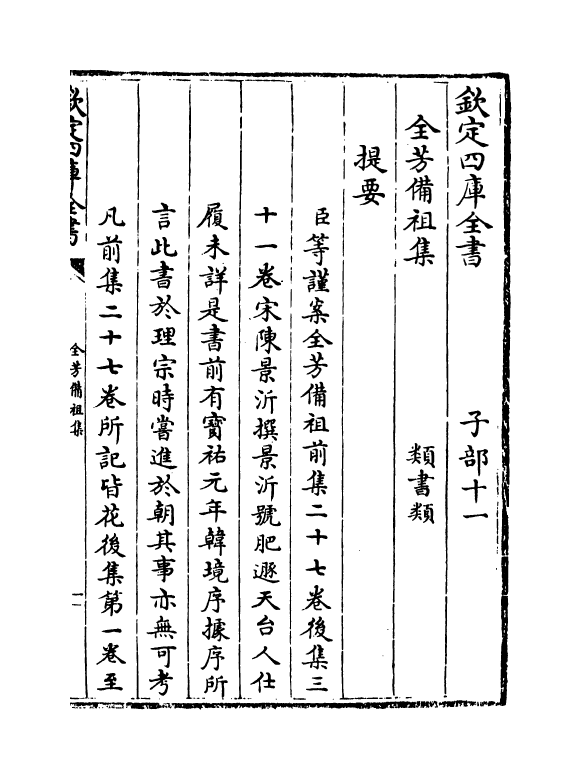 欽定四庫全書　子部十一
全芳備祖集　類書類
提要
臣等謹案全芳備祖前集二十七卷後集三
十一卷宋陳景沂撰景沂號肥遯天台人仕
履未詳是書前有寶祐元年韓境序據序所
言此書於理宗時嘗進於朝其事亦無可考
凡前集二十七卷所記皆花後集第一卷至
欽定四庫全書
全芳備祖集